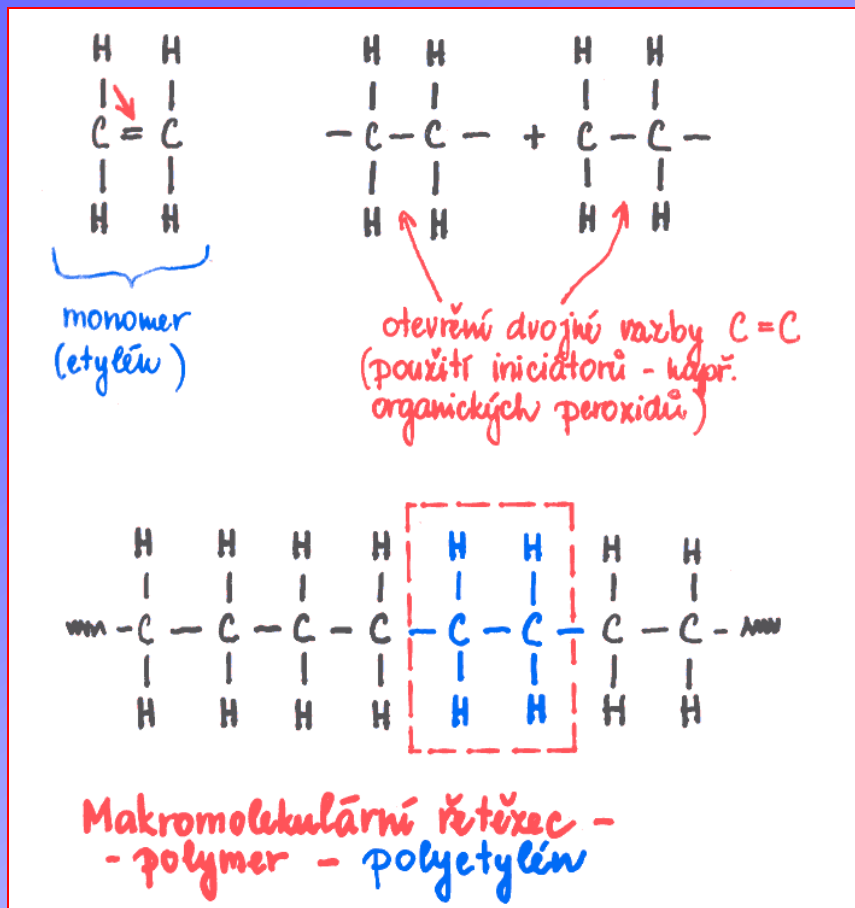 H H H H H H
C = C - C - C - + C - C -
H H H H H H
monomer
(etylén)
otevření dvojné vazby C = C
(použití iniciátorů - např.
organických peroxidů)
H H H H H H H H
- C - C - C - C - C - C - C - C -
H H H H H H H H
Makromolekulární řetězec -
- polymer - polyetylén